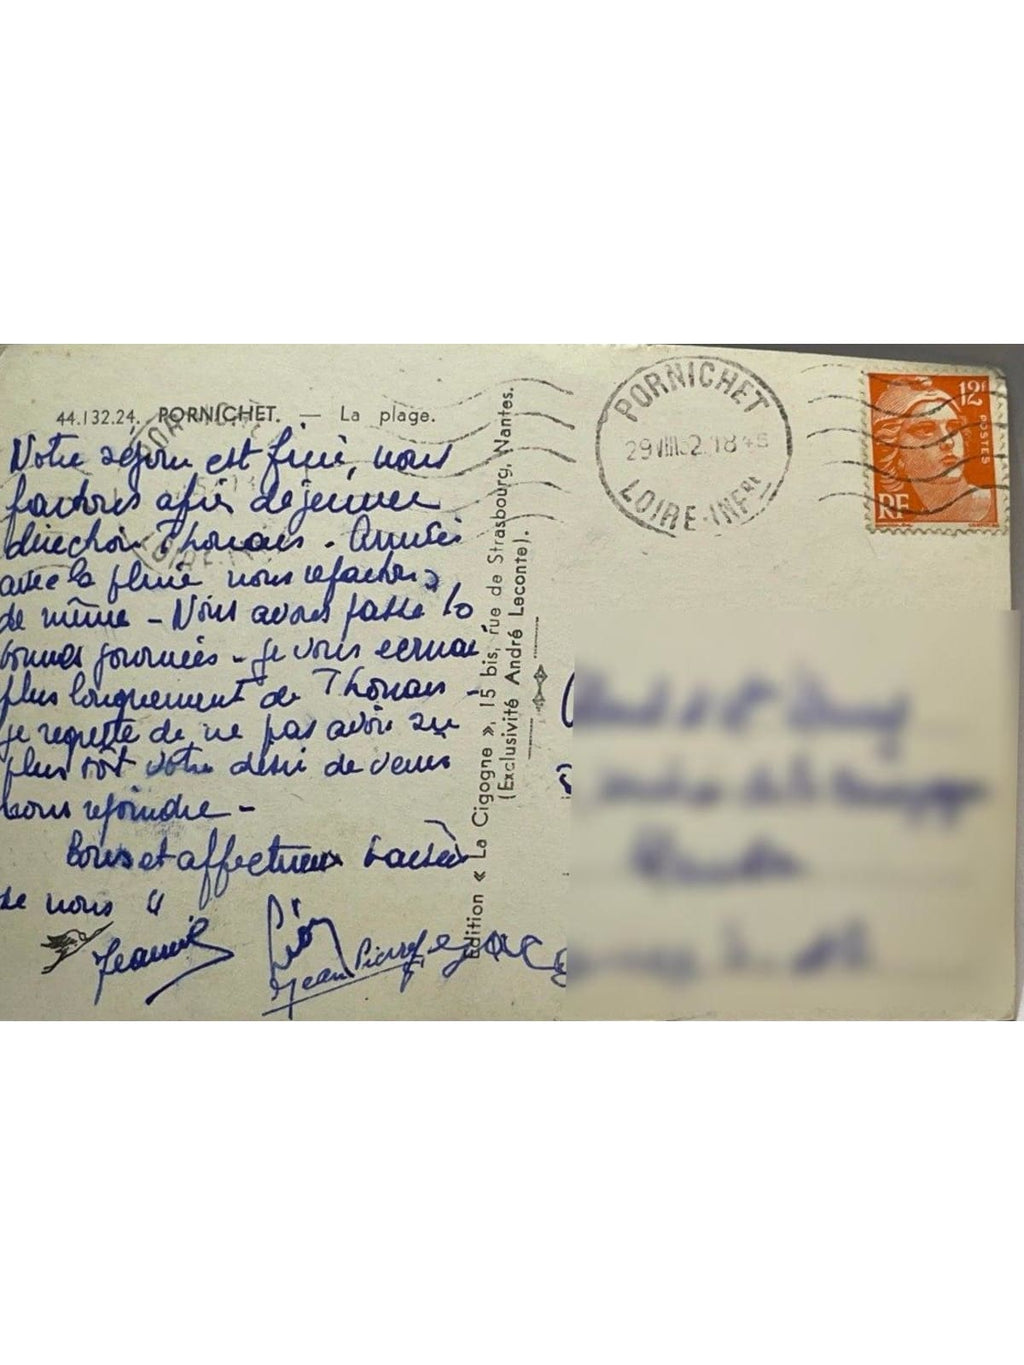 44.132.24. PORNICHET. — La plage.
Notre séjour est fini, nous
partons après déjeuner
direction Thouars. Arrivés
avec la pluie nous repartons
de même - Nous avons passé 10
bonnes journées - je vous écrirai
plus longuement de Thouars -
je regrette de ne pas avoir su
plus tôt votre désir de venir
nous rejoindre -
Bons et affectueux baisers
de nous 4
Jean Pierre
Edition « La Cigogne », 15 bis, rue de Strasbourg, Nantes.
(Exclusivité André Leconte).
PORNICHET
18 45
LOIRE-INFRE
12F
POSTES
RF